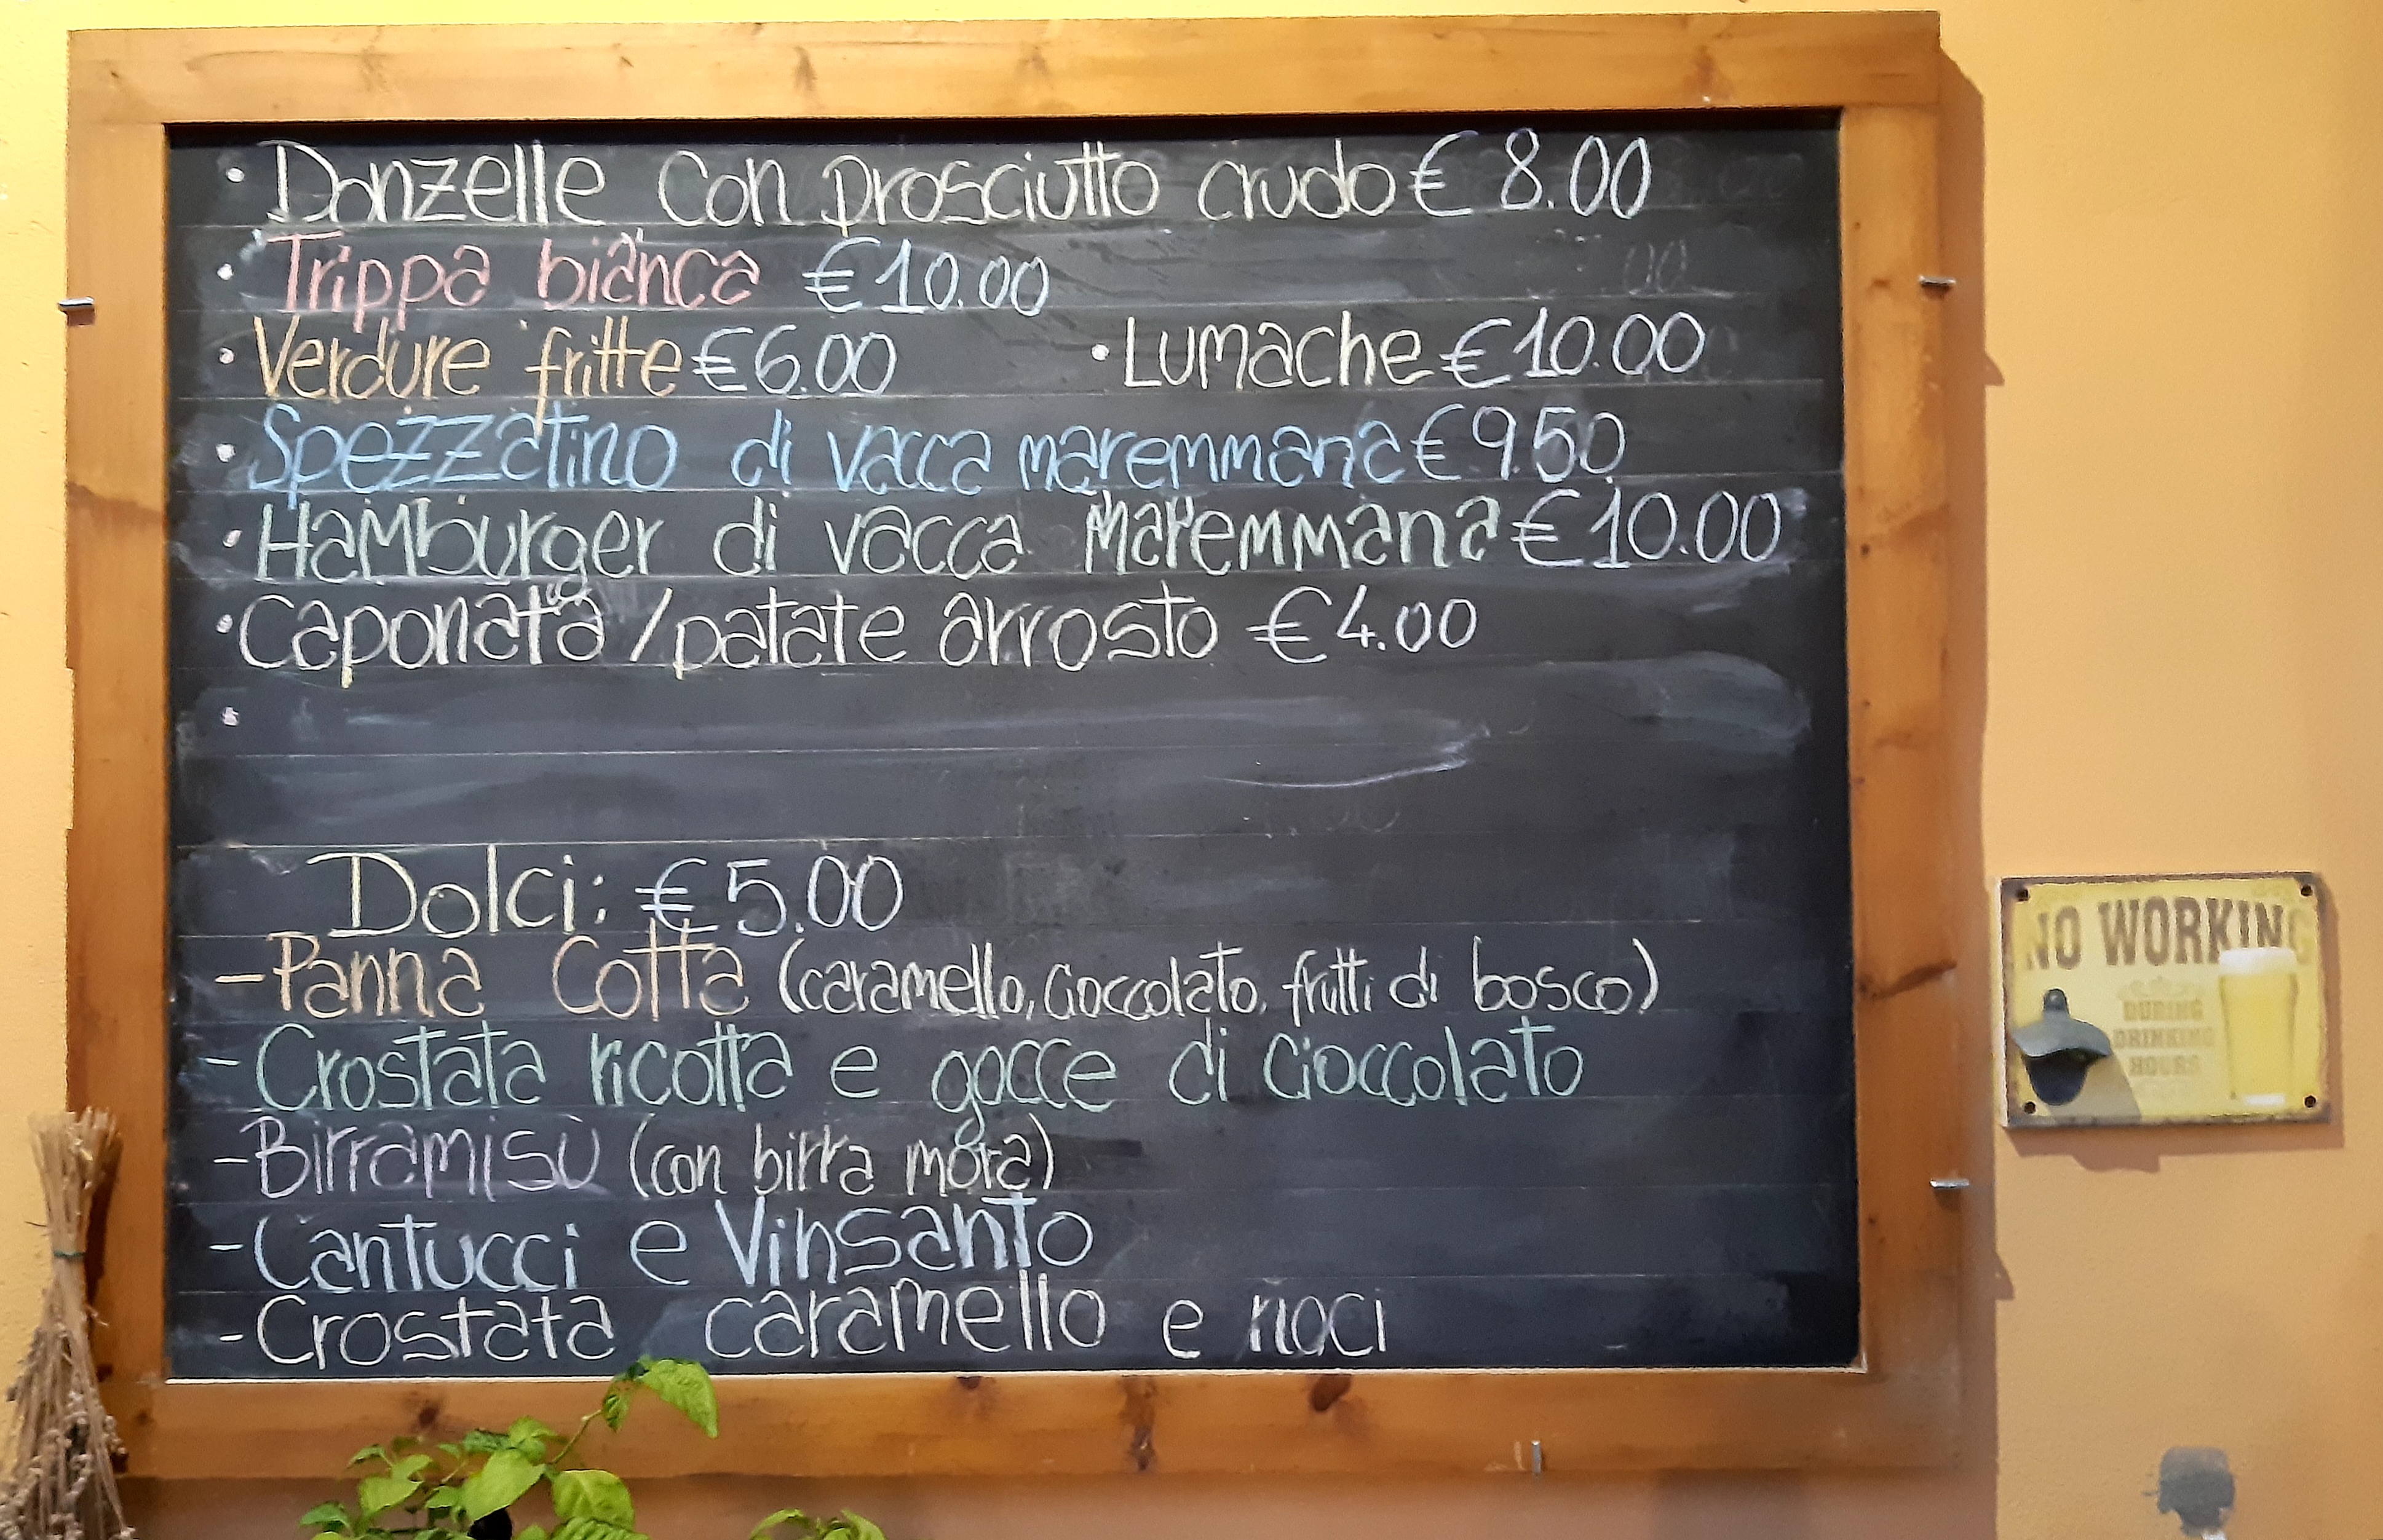 • Donzelle con prosciutto crudo € 8.00
• Trippa bianca € 10.00
• Verdure fritte € 6.00 • Lumache € 10.00
• Spezzatino di vacca maremmana € 9.50
• Hamburger di vacca maremmana € 10.00
• Caponata / patate arrosto € 4.00
•
Dolci: € 5.00
- Panna Cotta (caramello, cioccolato, frutti di bosco)
- Crostata ricotta e gocce di cioccolato
- Birramisù (con birra mora)
- Cantucci e Vinsanto
- Crostata caramello e noci
NO WORKING
DURING
DRINKING
HOURS